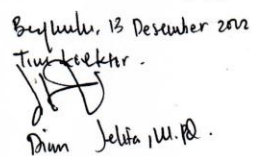 Bengkulu, 13 Desember 2022
Tim Korektor.
Dian Jelita, M.Pd.